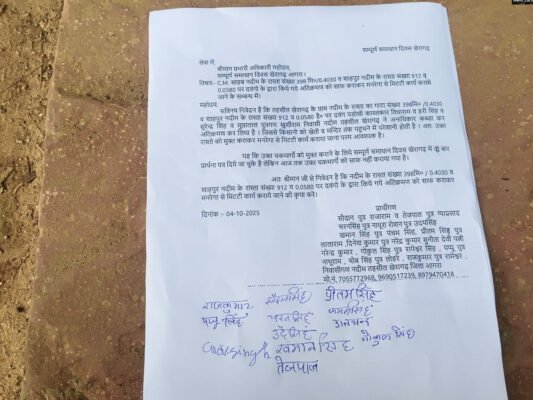 सम्पूर्ण समाधान दिवस खेरागढ़
सेवा में,
श्रीमान प्रभारी अधिकारी महोदय,
सम्पूर्ण समाधान दिवस खेरागढ़ आगरा।
विषयः- C.M. साहब नदीम के रास्ता संख्या 398 मि०/0.4030 व शाहपुर नदीम के रास्ता संख्या 912 व
0.0580 पर दबंगो के द्वारा किये गये अतिक्रमण को साफ कराकर मनरेगा से मिटटी कार्य कराये
जाने के सम्बन्ध में।
महोदय,
सविनय निवेदन है कि तहसील खेरागढ़ के ग्राम नदीम का रास्ता का गाटा संख्या 398मि० /0.4030
व शाहपुर नदीम के रास्ता संख्या 912 व 0.0580 है० पर दबंग पडोसी काश्तकार
सुरेन्द्र सिंह व मुन्नालाल पुत्रगण खुशीराम निवासी नदीम तहसील खेरागढ़ ने अनाधिकार कब्जा कर
अतिक्रमण कर लिया है। जिससे किसानो को खेतो व मन्दिर तक पहुचने में परेशानी होती है। अतः उक्त
रास्ते को मुक्त कराकर मनरेगा से मिटटी कार्य कराया जाना परम आवश्यक है।
यह कि उक्त चकमार्गो को मुक्त कराने के लिये सम्पूर्ण समाधान दिवस खेरागढ़ में दो बार
प्रार्थना पत्र दिये जा चुके है लेकिन आज तक उक्त चकमार्गो को साफ नही कराया गया है।
अतः श्रीमान जी से निवेदन है कि नदीम के रास्ता संख्या 398मि०/ 0.4030 व
शाहपुर नदीम के रास्ता संख्या 912 व 0.0580 पर दबंगो के द्वारा किये गये अतिक्रमण को साफ कराकर
मनरेगा से मिटटी कार्य कराये जाने की कृपा करे।
दिनांक :- 04-10-2025
प्रार्थीगण
सोदान पुत्र राजाराम व तेजपाल पुत्र ग्याप्रसाद
चरनसिंह पुत्र नाथूरा रोशन पुत्र उदयसिंह
खमान सिंह पुत्र पंचम सिंह, प्रीतम सिंह पुत्र
लालाराम दिनेश कुमार पुत्र नरेन्द्र कुमार सुनीता देवी पत्नी
नरेन्द्र कुमार, गोकुल सिंह पुत्र रामेश्वर सिंह, पप्पू पुत्र
नाथूराम , चोब सिंह पुत्र लोहरे , राजकुमार पुत्र रामेश्वर ,
निवासीगण नदीम तहसील खेरागढ़ जिला आगरा
मो.नं. 7055772968, 9690517239, 8979470416
राजकुमार सौदानसिंह प्रीतम सिंह
पप्पू सिंह चरन सिंह
उदै सिंह
खमान सिंह गोकुल सिंह
तेजपाल